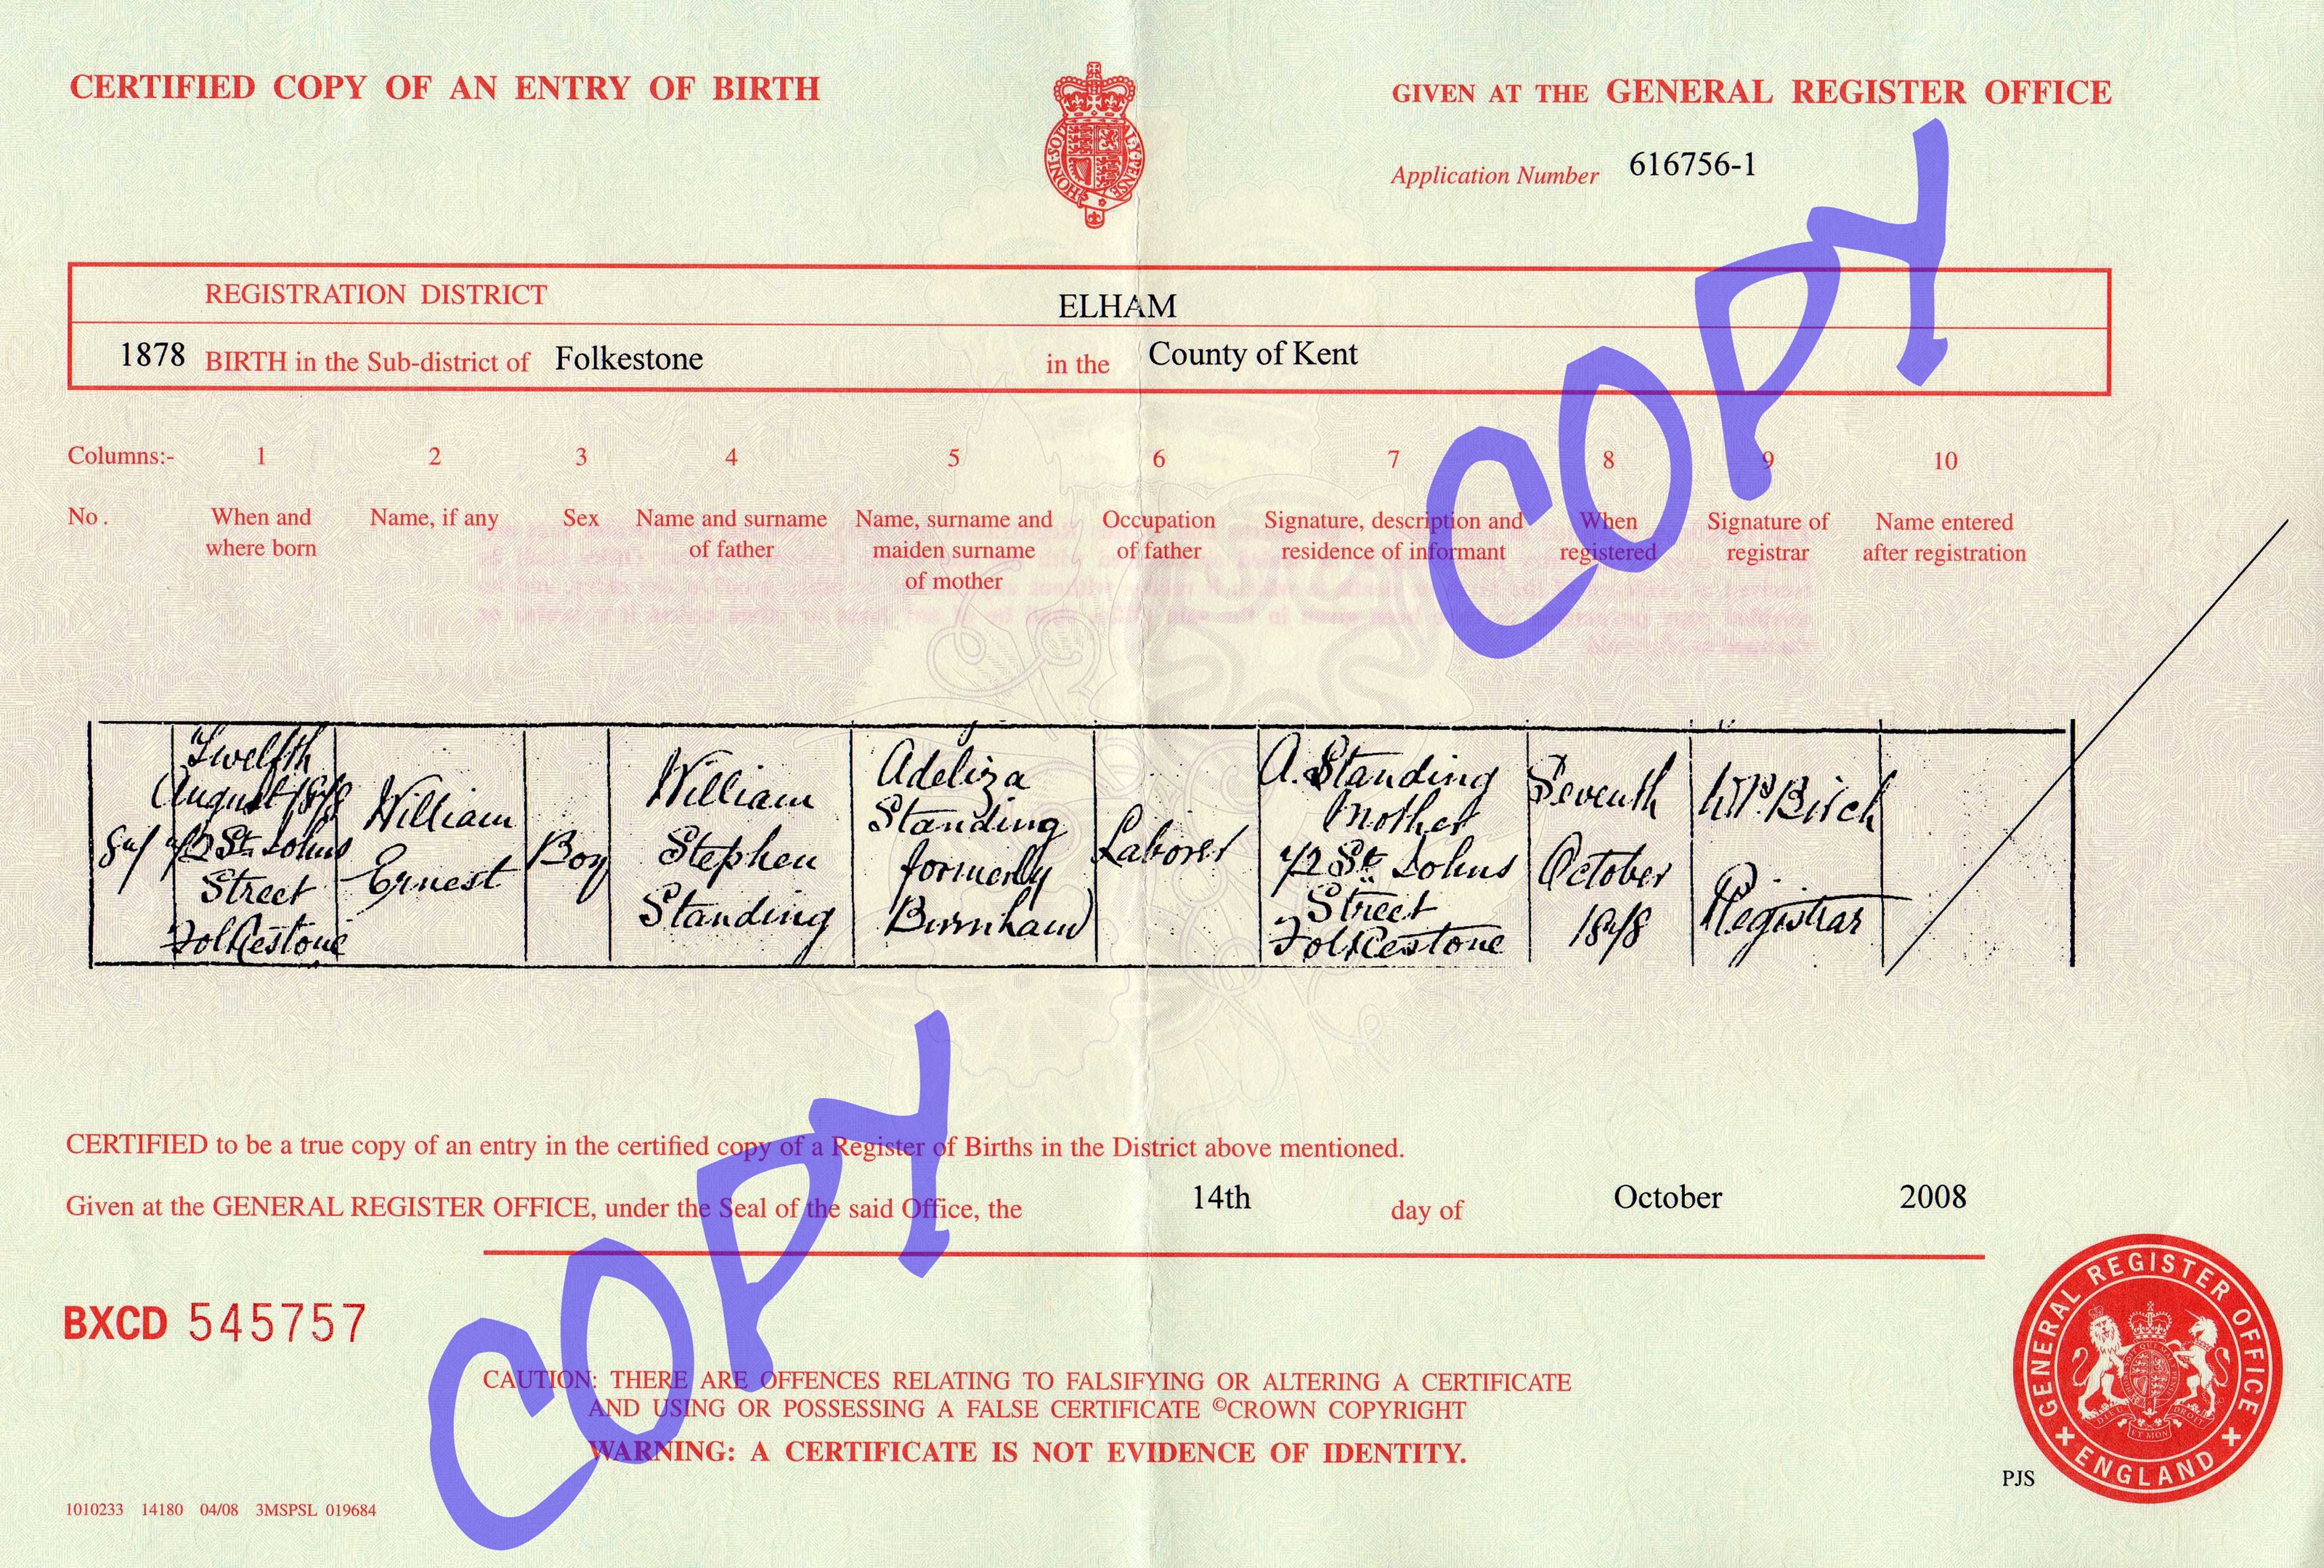 CERTIFIED COPY OF AN ENTRY OF BIRTH
GIVEN AT THE GENERAL REGISTER OFFICE
Application Number 616756-1
REGISTRATION DISTRICT ELHAM
1878 BIRTH in the Sub-district of Folkestone in the County of Kent
Columns:- 1 2 3 4 5 6 7 8 9 10
No. When and where born
Name, if any
Sex
Name and surname of father
Name, surname and maiden surname of mother
Occupation of father
Signature, description and residence of informant
When registered
Signature of registrar
Name entered after registration
Twelfth
August 1878
72 St. Johns
Street
Folkestone
William
Ernest
Boy
William
Stephen
Standing
Adeliza
Standing
formerly
Burnham
Laborer
A. Standing
Mother
72 St. Johns
Street
Folkestone
Seventh
October
1878
Birch
Registrar
CERTIFIED to be a true copy of an entry in the certified copy of a Register of Births in the District above mentioned.
Given at the GENERAL REGISTER OFFICE, under the Seal of the said Office, the 14th day of October 2008
BXCD 545757
CAUTION: THERE ARE OFFENCES RELATING TO FALSIFYING OR ALTERING A CERTIFICATE
AND USING OR POSSESSING A FALSE CERTIFICATE ©CROWN COPYRIGHT
WARNING: A CERTIFICATE IS NOT EVIDENCE OF IDENTITY.
1010233 14180 04/08 3MSPSL 019684
PJS
GENERAL REGISTER OFFICE
ENGLAND
COPY
COPY